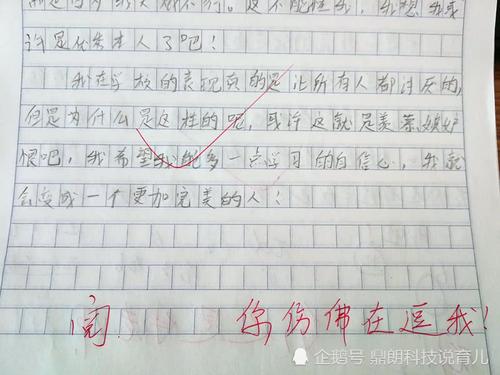 许是优秀本人了吧！
我在学校的表现真的是让所有人都讨厌的，
但是为什么是这样的呢，或许这就是羡慕嫉妒
恨吧，我希望我能多一点学习的自信心，我就
会变成一个更加完美的人！
阅 你仿佛在逗我！
企鹅号 鼎朗科技说育儿